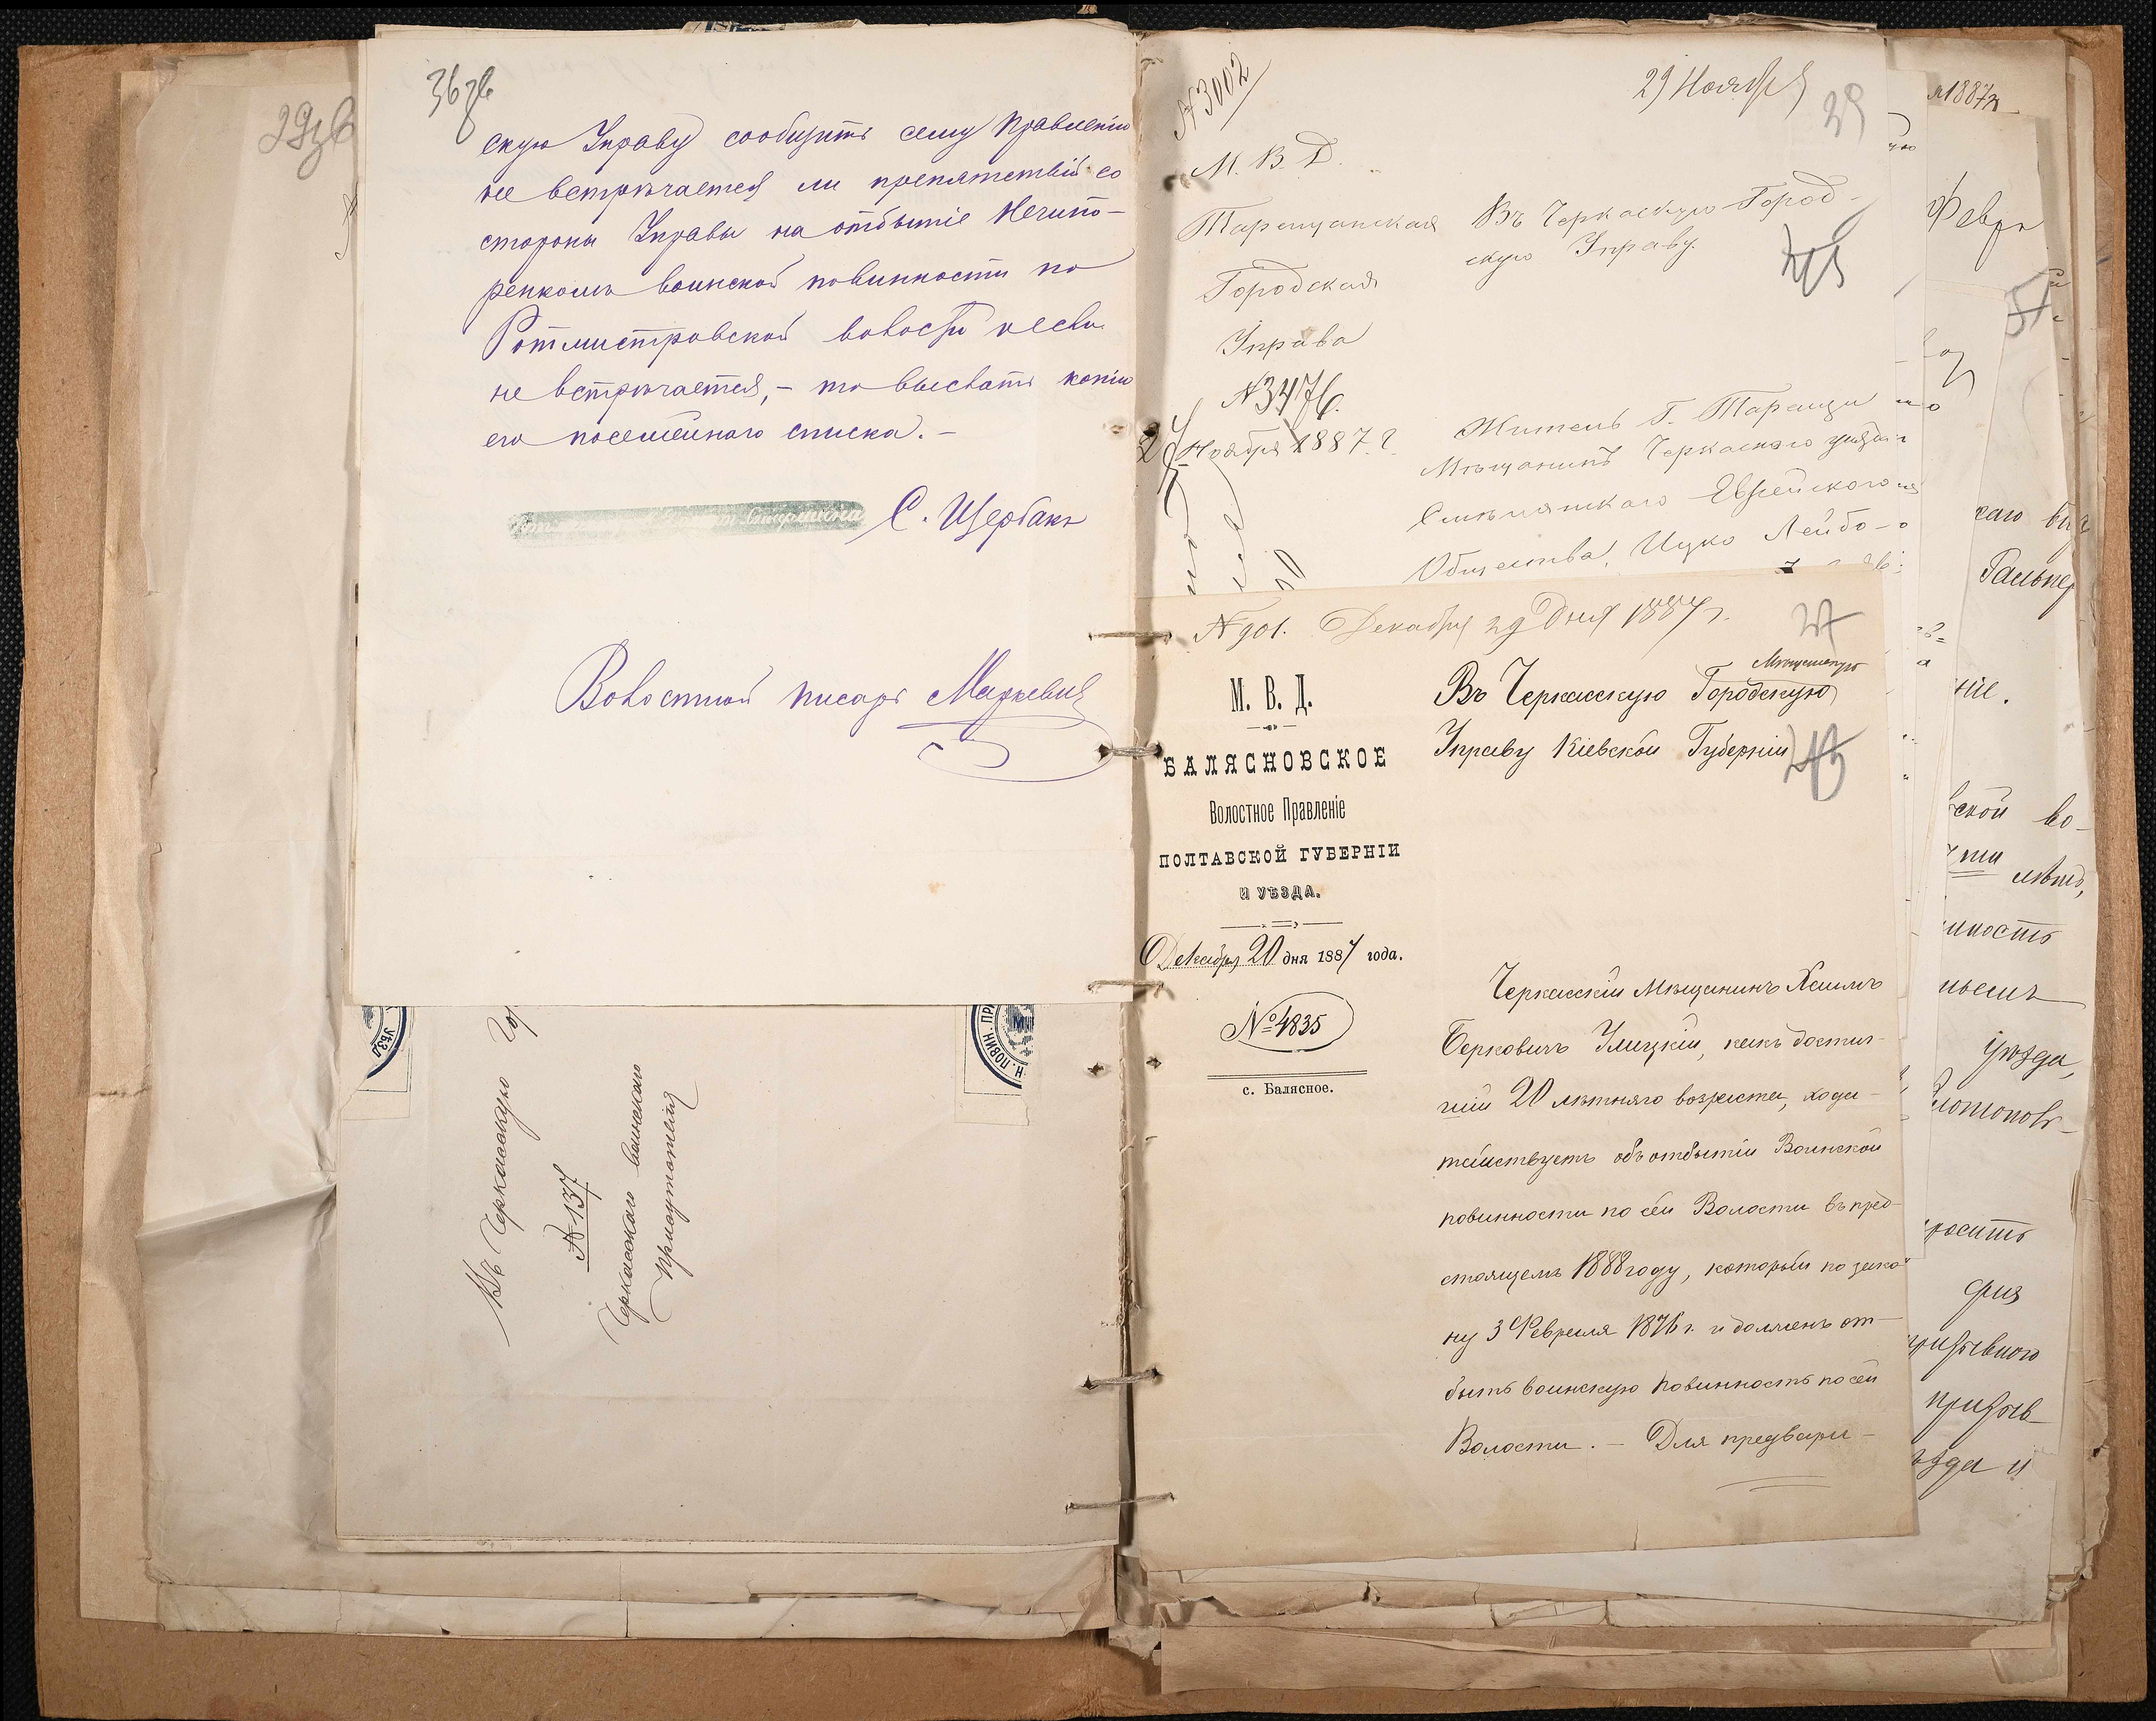 29 об
36 об
скую Управу сообщить сему Правленію
не встрѣчается ли препятствій со
стороны Управы на отбытіе Нечипо-
ренкомъ воинской повинности по
Ротмистровской волости если
не встрѣчается, – то выслать копію
его посемейнаго списка. –
С. Щербакъ
Волостной писарь Маркевич
УѢЗД.
Н. ПОВИН. ПР
Въ Черкасскую Гор
№ 137
Черкасскаго воинскаго
присутствія
№ 3002
29 Ноября
29
М. В. Д.
Таращанская
Городская
Управа
№ 3476.
Ноября 1887 г.
Въ Черкаскую Город-
скую Управу.
Житель Г. Таращи
Мѣщанинъ Черкаскаго уѣзда
Смѣлянскаго Еврейского
Общества, Ицко Лейбо-
№ 901. Декабря 29 Дня 1887 г.
М. В. Д.
БАЛЯСНОВСКОЕ
Волостное Правленіе
ПОЛТАВСКОЙ ГУБЕРНІИ
И УѢЗДА.
Декабря 20 дня 1887 года.
№ 4835
с. Балясное.
Мѣщанскую
Въ Черкасскую Городскую
Управу Кіевской Губерніи
Черкасскій Мѣщанинъ Хаимъ
Берковичъ Улицкій, какъ достиг-
шій 20 лѣтняго возраста, хода-
тайствуетъ объ отбытіи Воинской
повинности по сей Волости въ пред-
стоящемъ 1888 году, который по зако-
ну 3 Февраля 1876 г. и долженъ от-
быть воинскую повинность по сей
Волости. – Для предвари-
1887
Февр
51
каго
Гальпер
ніе.
ской во-
лѣтъ,
ность
уѣзда,
Золотоно
росить
призывного
призыв-
ѣзда и